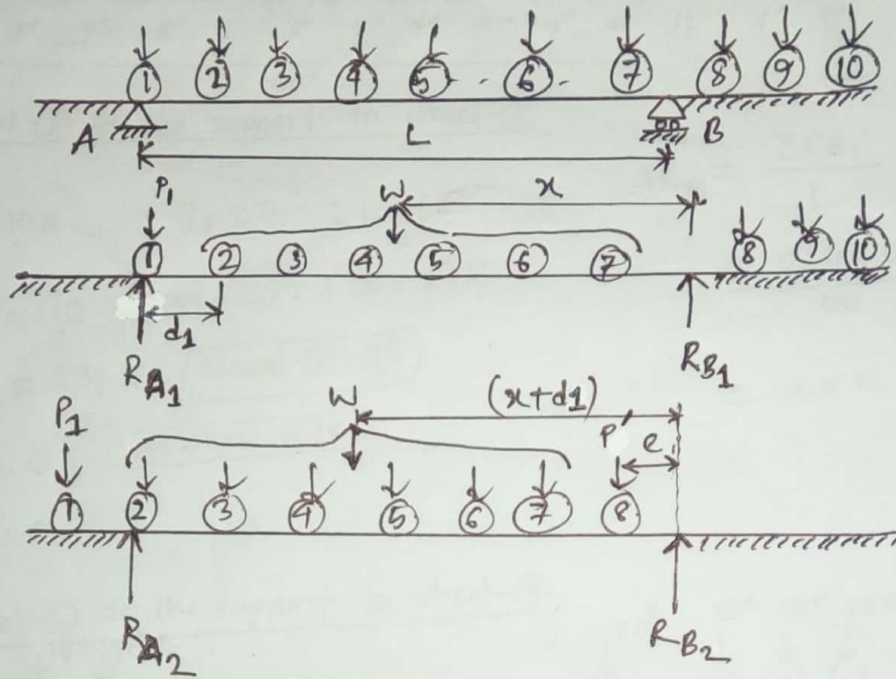 1 2 3 4 5 6 7 8 9 10
A L B
P1 W x
1 2 3 4 5 6 7 8 9 10
d1
RA1 RB1
W (x+d1)
P1 P' e
1 2 3 4 5 6 7 8
RA2 RB2